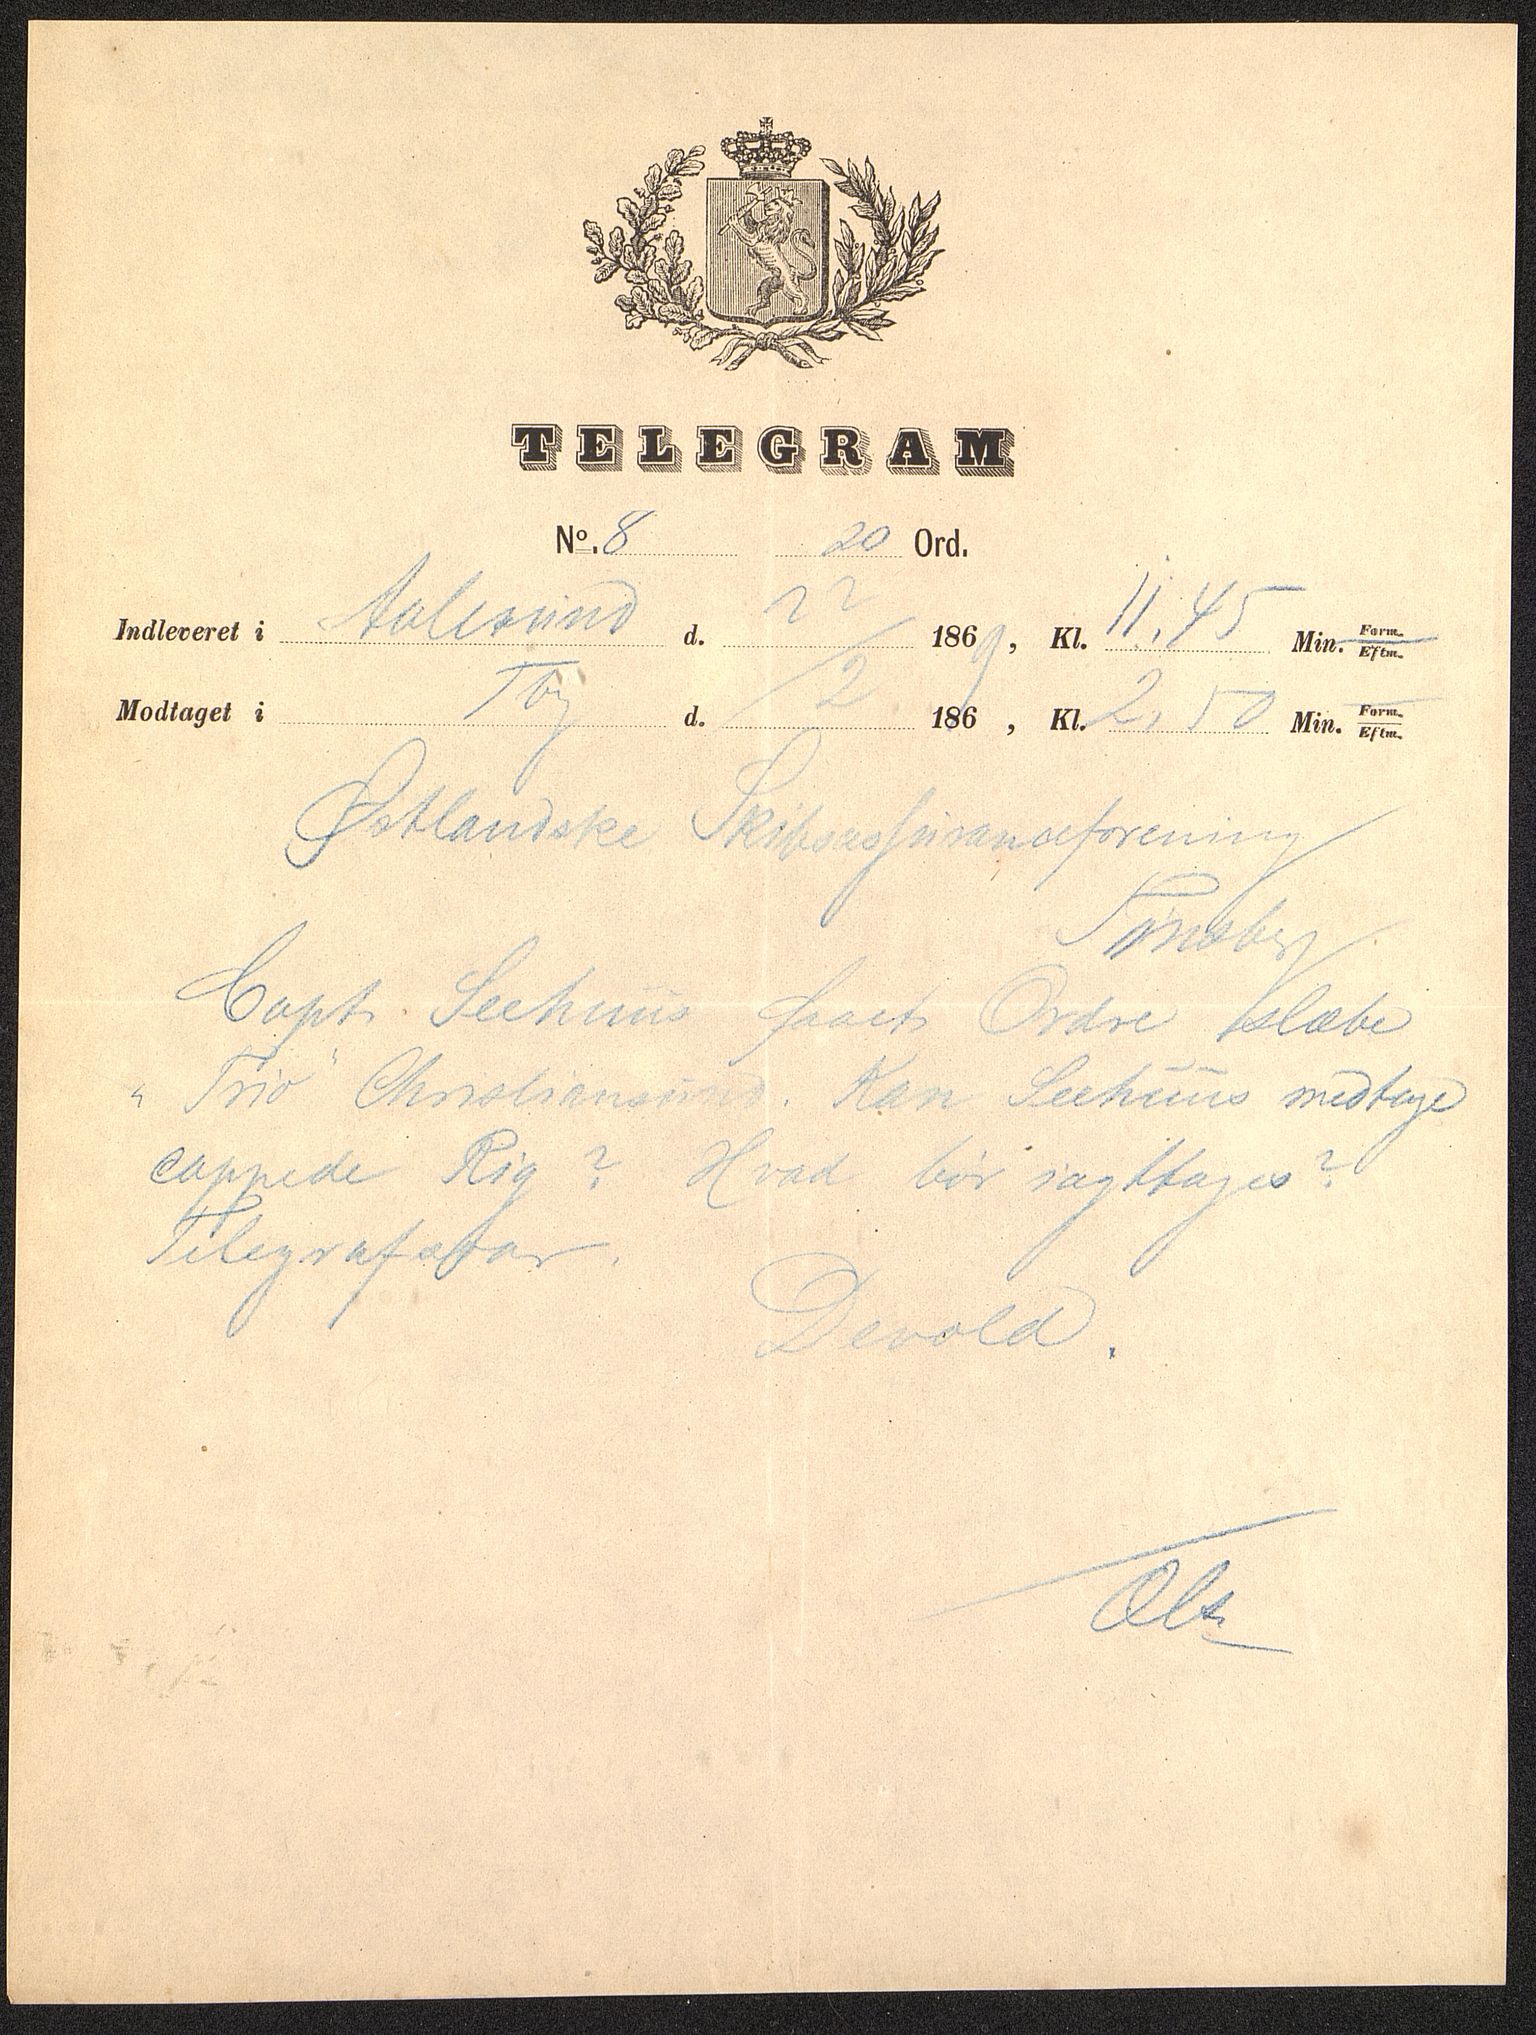 TELEGRAM
No. 8 20 Ord.
Indleveret i Aalesund d. 22/2 1869, Kl. 11.45 Min. Form. Eftm.
Modtaget i Tbg d. 186 , Kl. 2.50 Min. Form. Eftm.
Østlandske Skibsassuranceforening
Tønsberg
Capt. Seehuus faaet Ordre slæbe
"Trio" Christiansund. Kan Seehuus medtage
cappede Rig? Hvad bør iagttages?
Telegrafsvar.
Devold.